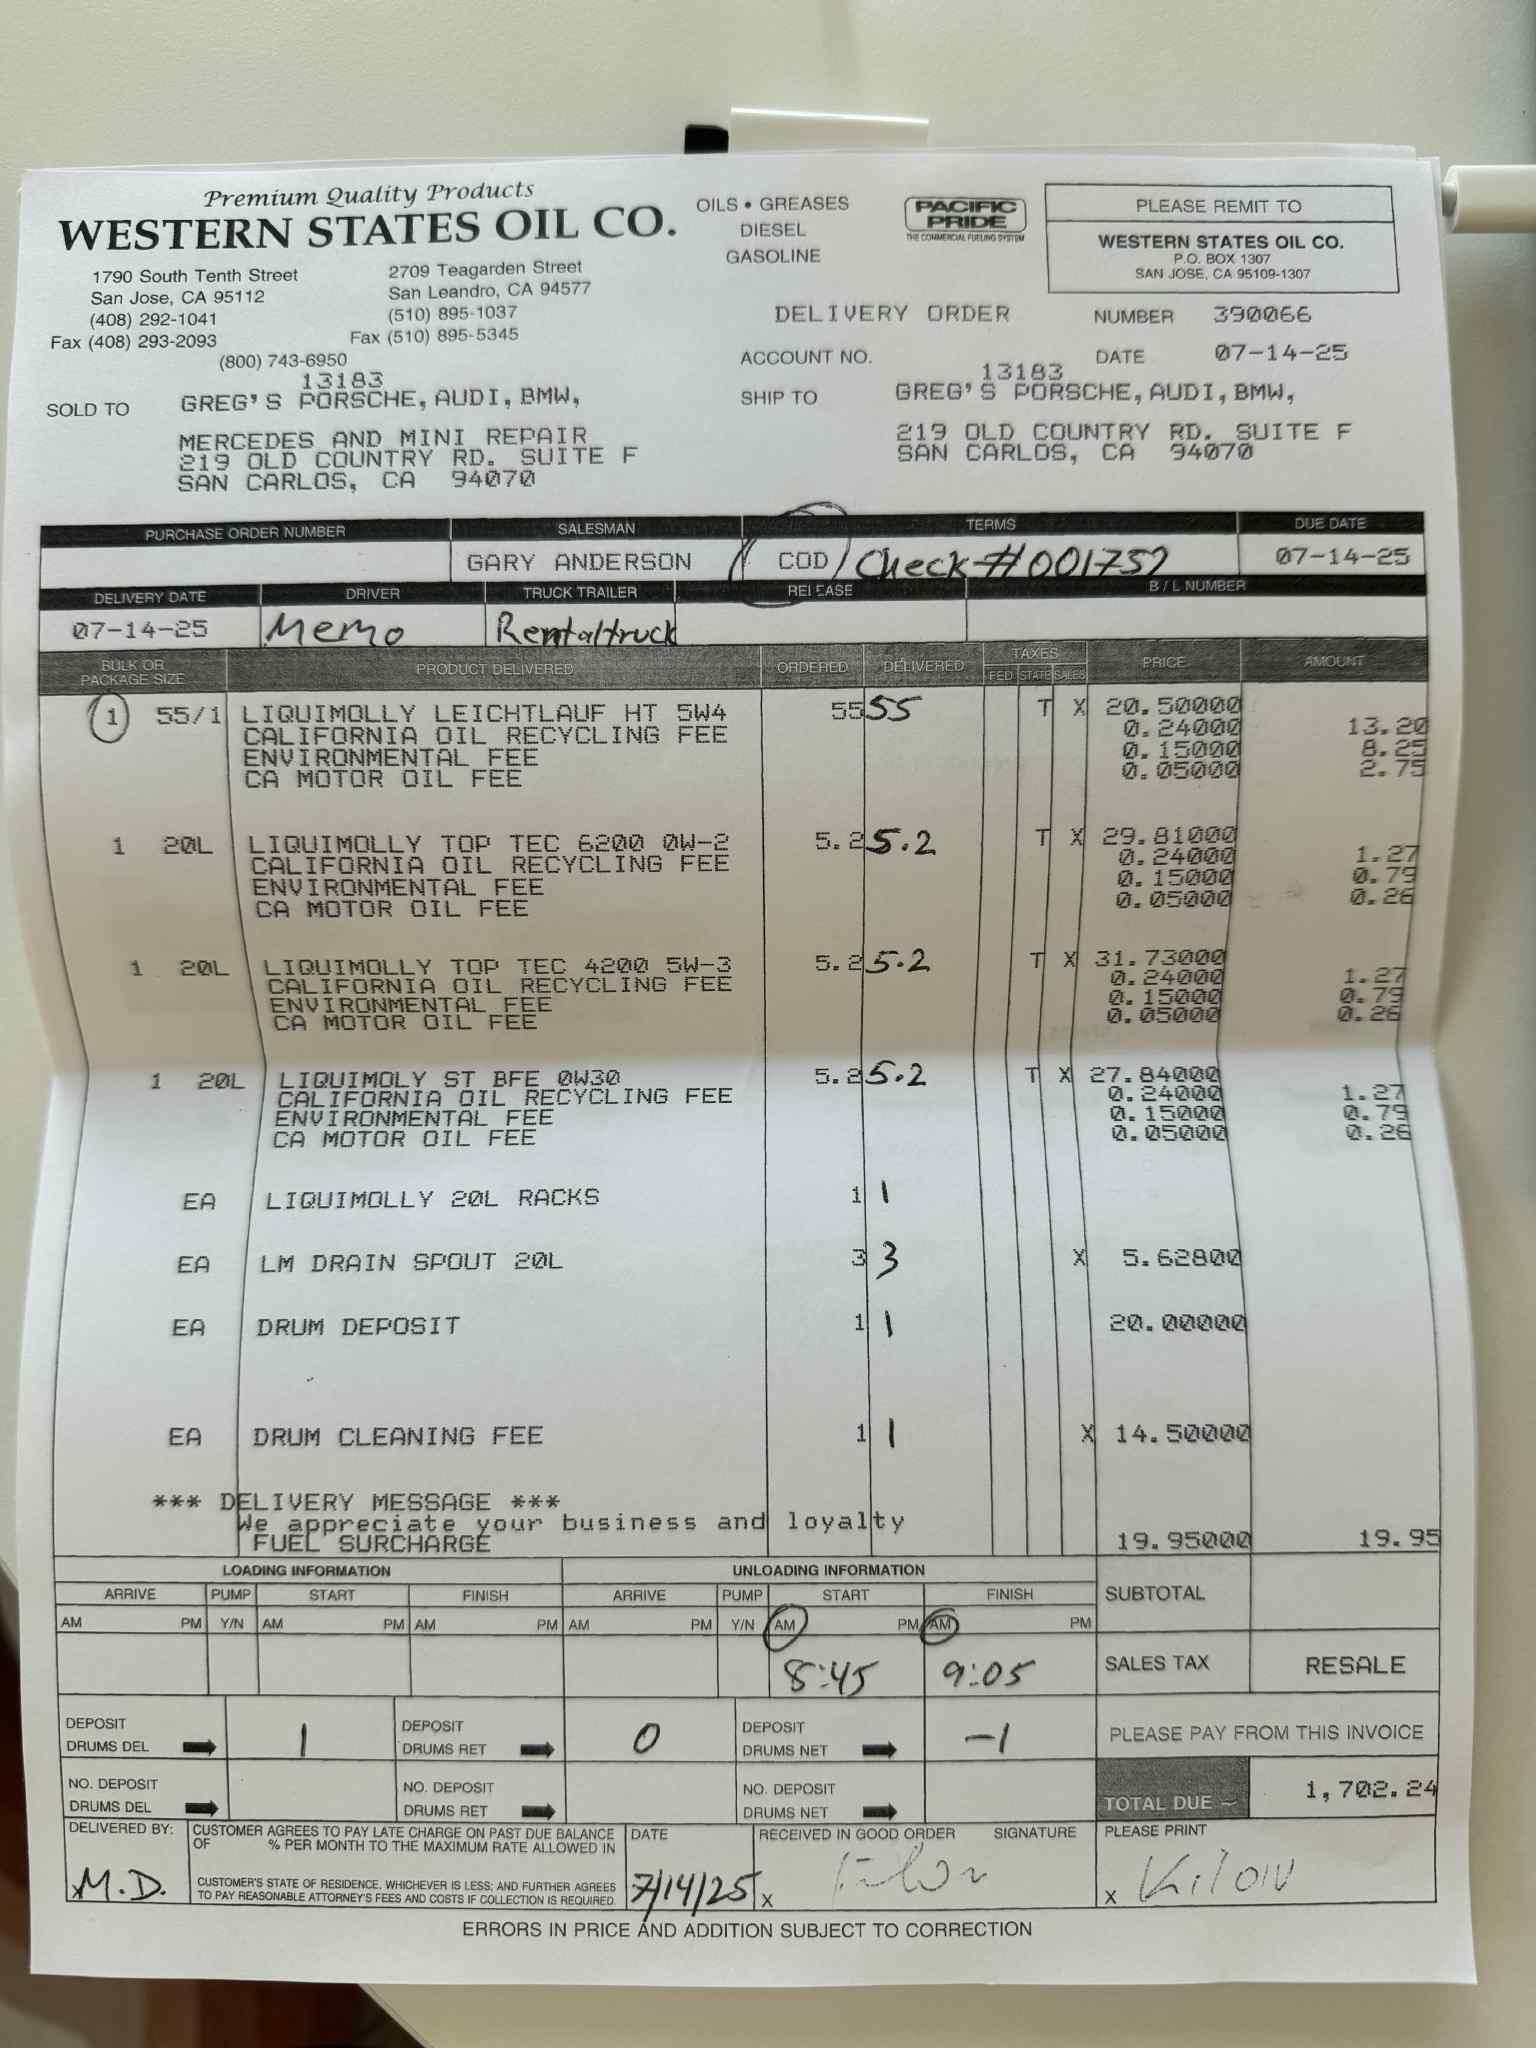 Premium Quality Products
WESTERN STATES OIL CO.
1790 South Tenth Street
San Jose, CA 95112
(408) 292-1041
Fax (408) 293-2093
2709 Teagarden Street
San Leandro, CA 94577
(510) 895-1037
Fax (510) 895-5345
(800) 743-6950
OILS • GREASES
DIESEL
GASOLINE
PACIFIC
PRIDE
THE COMMERCIAL FUELING SYSTEM
PLEASE REMIT TO
WESTERN STATES OIL CO.
P.O. BOX 1307
SAN JOSE, CA 95109-1307
DELIVERY ORDER NUMBER 390066
ACCOUNT NO. 13183 DATE 07-14-25
SOLD TO 13183
GREG'S PORSCHE, AUDI, BMW,
MERCEDES AND MINI REPAIR
219 OLD COUNTRY RD. SUITE F
SAN CARLOS, CA 94070
SHIP TO GREG'S PORSCHE, AUDI, BMW,
219 OLD COUNTRY RD. SUITE F
SAN CARLOS, CA 94070
PURCHASE ORDER NUMBER SALESMAN TERMS DUE DATE
GARY ANDERSON COD Check #001757 07-14-25
DELIVERY DATE DRIVER TRUCK TRAILER RELEASE B / L NUMBER
07-14-25 Memo Rentaltruck
BULK OR PACKAGE SIZE PRODUCT DELIVERED ORDERED DELIVERED TAXES FED STATE SALES PRICE AMOUNT
1 55/1 LIQUIMOLLY LEICHTLAUF HT 5W4 55 55 T X 20.50000
CALIFORNIA OIL RECYCLING FEE 0.24000 13.20
ENVIRONMENTAL FEE 0.15000 8.25
CA MOTOR OIL FEE 0.05000 2.75
1 20L LIQUIMOLLY TOP TEC 6200 0W-2 5.2 5.2 T X 29.81000
CALIFORNIA OIL RECYCLING FEE 0.24000 1.27
ENVIRONMENTAL FEE 0.15000 0.79
CA MOTOR OIL FEE 0.05000 0.26
1 20L LIQUIMOLLY TOP TEC 4200 5W-3 5.2 5.2 T X 31.73000
CALIFORNIA OIL RECYCLING FEE 0.24000 1.27
ENVIRONMENTAL FEE 0.15000 0.79
CA MOTOR OIL FEE 0.05000 0.26
1 20L LIQUIMOLY ST BFE 0W30 5.2 5.2 T X 27.84000
CALIFORNIA OIL RECYCLING FEE 0.24000 1.27
ENVIRONMENTAL FEE 0.15000 0.79
CA MOTOR OIL FEE 0.05000 0.26
EA LIQUIMOLLY 20L RACKS 1 1
EA LM DRAIN SPOUT 20L 3 3 X 5.62800
EA DRUM DEPOSIT 1 1 20.00000
EA DRUM CLEANING FEE 1 1 X 14.50000
*** DELIVERY MESSAGE ***
We appreciate your business and loyalty
FUEL SURCHARGE 19.95000 19.95
LOADING INFORMATION UNLOADING INFORMATION
ARRIVE PUMP START FINISH ARRIVE PUMP START FINISH SUBTOTAL
AM PM Y/N AM PM AM PM AM PM Y/N AM PM AM PM
8:45 9:05 SALES TAX RESALE
DEPOSIT DRUMS DEL 1 DEPOSIT DRUMS RET 0 DEPOSIT DRUMS NET -1 PLEASE PAY FROM THIS INVOICE
NO. DEPOSIT DRUMS DEL NO. DEPOSIT DRUMS RET NO. DEPOSIT DRUMS NET TOTAL DUE 1,702.24
DELIVERED BY: M.D.
CUSTOMER AGREES TO PAY LATE CHARGE ON PAST DUE BALANCE
OF % PER MONTH TO THE MAXIMUM RATE ALLOWED IN
CUSTOMER'S STATE OF RESIDENCE, WHICHEVER IS LESS; AND FURTHER AGREES
TO PAY REASONABLE ATTORNEY'S FEES AND COSTS IF COLLECTION IS REQUIRED
DATE 7/14/25
RECEIVED IN GOOD ORDER SIGNATURE X
PLEASE PRINT X
ERRORS IN PRICE AND ADDITION SUBJECT TO CORRECTION